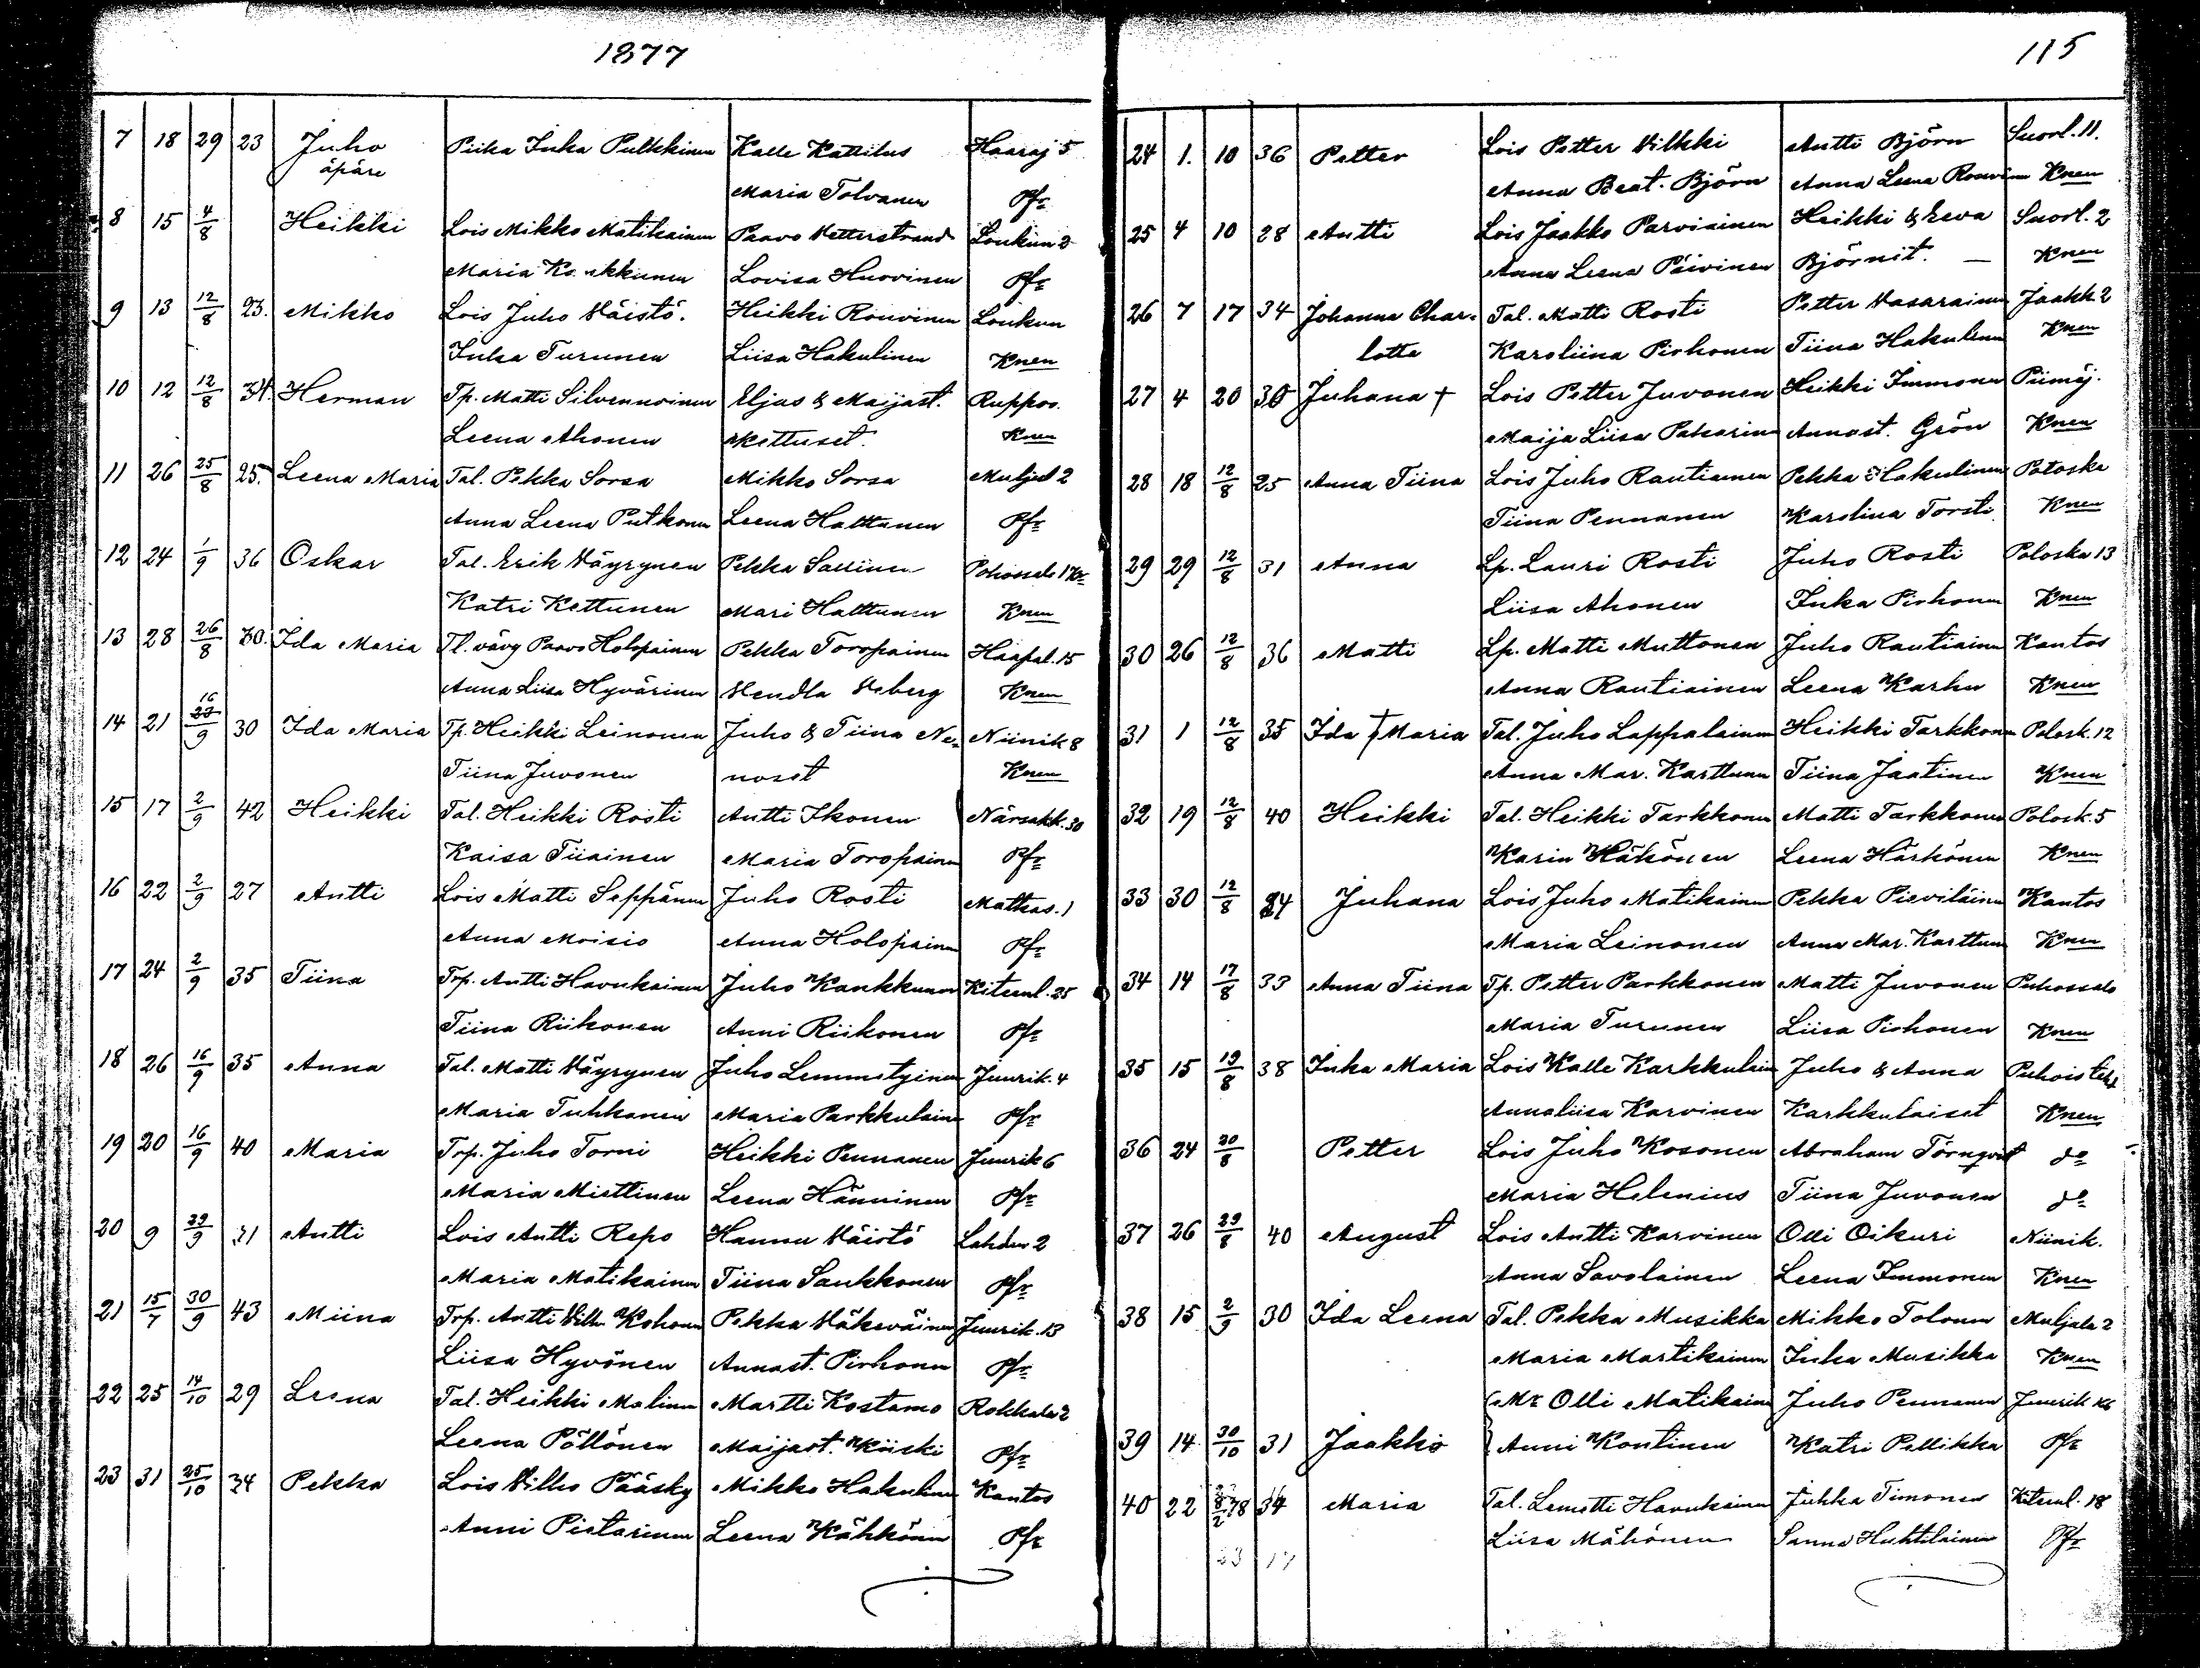 1877
7 18 29 23 Juho Piika Inka Pulkkinen Kalle Kattilus Haaraj 5
äpäre Maria Tolvanen Pfr
8 15 4/8 Heikki Lois Mikko Matikainen Paavo Vetterstrand Loukun 2
Maria Lovisa Huovinen Pfr
9 13 12/8 23. Mikko Lois Juho Väistö. Heikki Rouvinen Loukun
Inka Turunen Liisa Hakulinen Knen
10 12 12/8 34. Herman Tp. Matti Silvennoinen Eljas & Maijast. Ruppov.
Leena Ahonen Kettuset. Knen
11 26 25/8 25. Leena Maria Tal. Pekka Sorsa Mikko Sorsa Muljul 2
Anna Leena Putkonen Leena Hattunen Pfr
12 24 1/9 36 Oskar Tal. Erik Väyrynen Pekka Sallinen
Katri Kettunen Mari Halttunen Knen
13 28 26/8 30. Ida Maria Tl. vävy Paavo Holopainen Pekka Toropainen Haapal. 15
Anna Liisa Hyvärinen Vendla Veberg Knen
14 21 16/9 30 Ida Maria Tp. Heikki Leinonen Juho & Tiina Ne- Niinik 8
Tiina Juvonen noset Knen
15 17 2/9 42 Heikki Tal. Heikki Rosti Antti Ikonen Närsakk. 30
Kaisa Tiiainen Maria Toropainen Pfr
16 22 2/9 27 Antti Lois Matti Seppänen Juho Rosti Matkas. 1
Anna Moisio Anna Holopainen Pfr
17 24 2/9 35 Tiina Trp. Antti Havukainen Juho Kaukkunen Kiteenl. 25
Tiina Riikonen Anni Riikonen Pfr
18 26 16/9 35 Anna Tal. Matti Väyrynen Juho Lemmetyinen Juurik. 4
Maria Tuhkanen Maria Parkkulainen Pfr
19 20 16/9 40 Maria Trp. Juho Torni Heikki Pennanen Juurik 6
Maria Miettinen Leena Hänninen Pfr
20 9 29/9 31 Antti Lois Antti Repo Hannu Väistö Lahden 2
Maria Matikainen Tiina Saukkonen Pfr
21 15/7 30/9 43 Miina Trp. Antti Vilh. Kohonen Pekka Väkeväinen Juurik. 13
Liisa Hyvönen Annast. Pirhonen Pfr
22 25 14/10 29 Leena Tal. Heikki Malinen Martti Kostamo Rokkala 2
Leena Pöllönen Maijast. Kiiski Pfr
23 31 25/10 34 Pekka Lois Vilho Pääsky Mikko Hakulinen Kantos
Anni Pietarinen Leena Kähkönen Pfr
115
24 1. 10 36 Petter Lois Petter Vilkki Antti Björn Suorl. 11.
Anna Beat. Björn Anna Leena Rouvinen Knen
25 4 10 28 Antti Lois Jaakko Parviainen Heikki & Eeva Suorl. 2
Anna Leena Päivinen Björnit. — Knen
26 7 17 34 Johanna Char- Tal. Matti Rosti Petter Vasarainen Jaakk. 2
lotta Karoliina Pirhonen Tiina Hakulinen Knen
27 4 20 30 Juhana † Lois Petter Juvonen Heikki Immonen Piimäj.
Maija Liisa Annast. Grön Knen
28 18 12/8 25 Anna Tiina Lois Juho Rautiainen Pekka Hakulinen Potoska
Tiina Pennanen Karolina Torsti Knen
29 29 12/8 31 Anna Lp. Lauri Rosti Juho Rosti Poloska 13
Liisa Ahonen Inka Pirhonen Knen
30 26 12/8 36 Matti Lp. Matti Muttonen Juho Rautiainen Kantos
Anna Rautiainen Leena Karhu Knen
31 1 12/8 35 Ida † Maria Tal. Juho Lappalainen Heikki Tarkkonen Polosk. 12
Anna Mar. Karttunen Tiina Jaatinen Knen
32 19 12/8 40 Heikki Tal. Heikki Tarkkonen Matti Tarkkonen Polosk. 5
Karin Häkönen Leena Härkönen Knen
33 30 12/8 24 Juhana Lois Juho Matikainen Pekka Pieviläinen Kantos
Maria Leinonen Anna Mar. Karttunen Knen
34 14 17/8 33 Anna Tiina Tp. Petter Parkkonen Matti Juvonen Puhossalo
Maria Turunen Liisa Pirhonen Knen
35 15 19/8 38 Inka Maria Lois Kalle Karkkulain Juho & Anna Puhois teht
Annaliisa Karvinen Karkkulaiset Knen
36 24 20/8 Petter Lois Juho Kosonen Abraham Törnqvist do
Maria Helenius Tiina Juvonen do
37 26 29/8 40 August Lois Antti Karvinen Olli Oikuri Niinik.
Anna Savolainen Leena Immonen Knen
38 15 2/9 30 Ida Leena Tal. Pekka Musikka Mikko Tolonen Muljula 2
Maria Martikainen Inka Musikka Knen
Mr Olli Matikainen Juho Pennanen Juurik
39 14 30/10 31 Jaakko Anni Kontinen Katri Pellikka Pfr
40 22 34 Maria Tal. Lemetti Havukainen Juhka Timonen Kiteenl. 18
Liisa Mähönen Sanna Huhtilainen Pfr